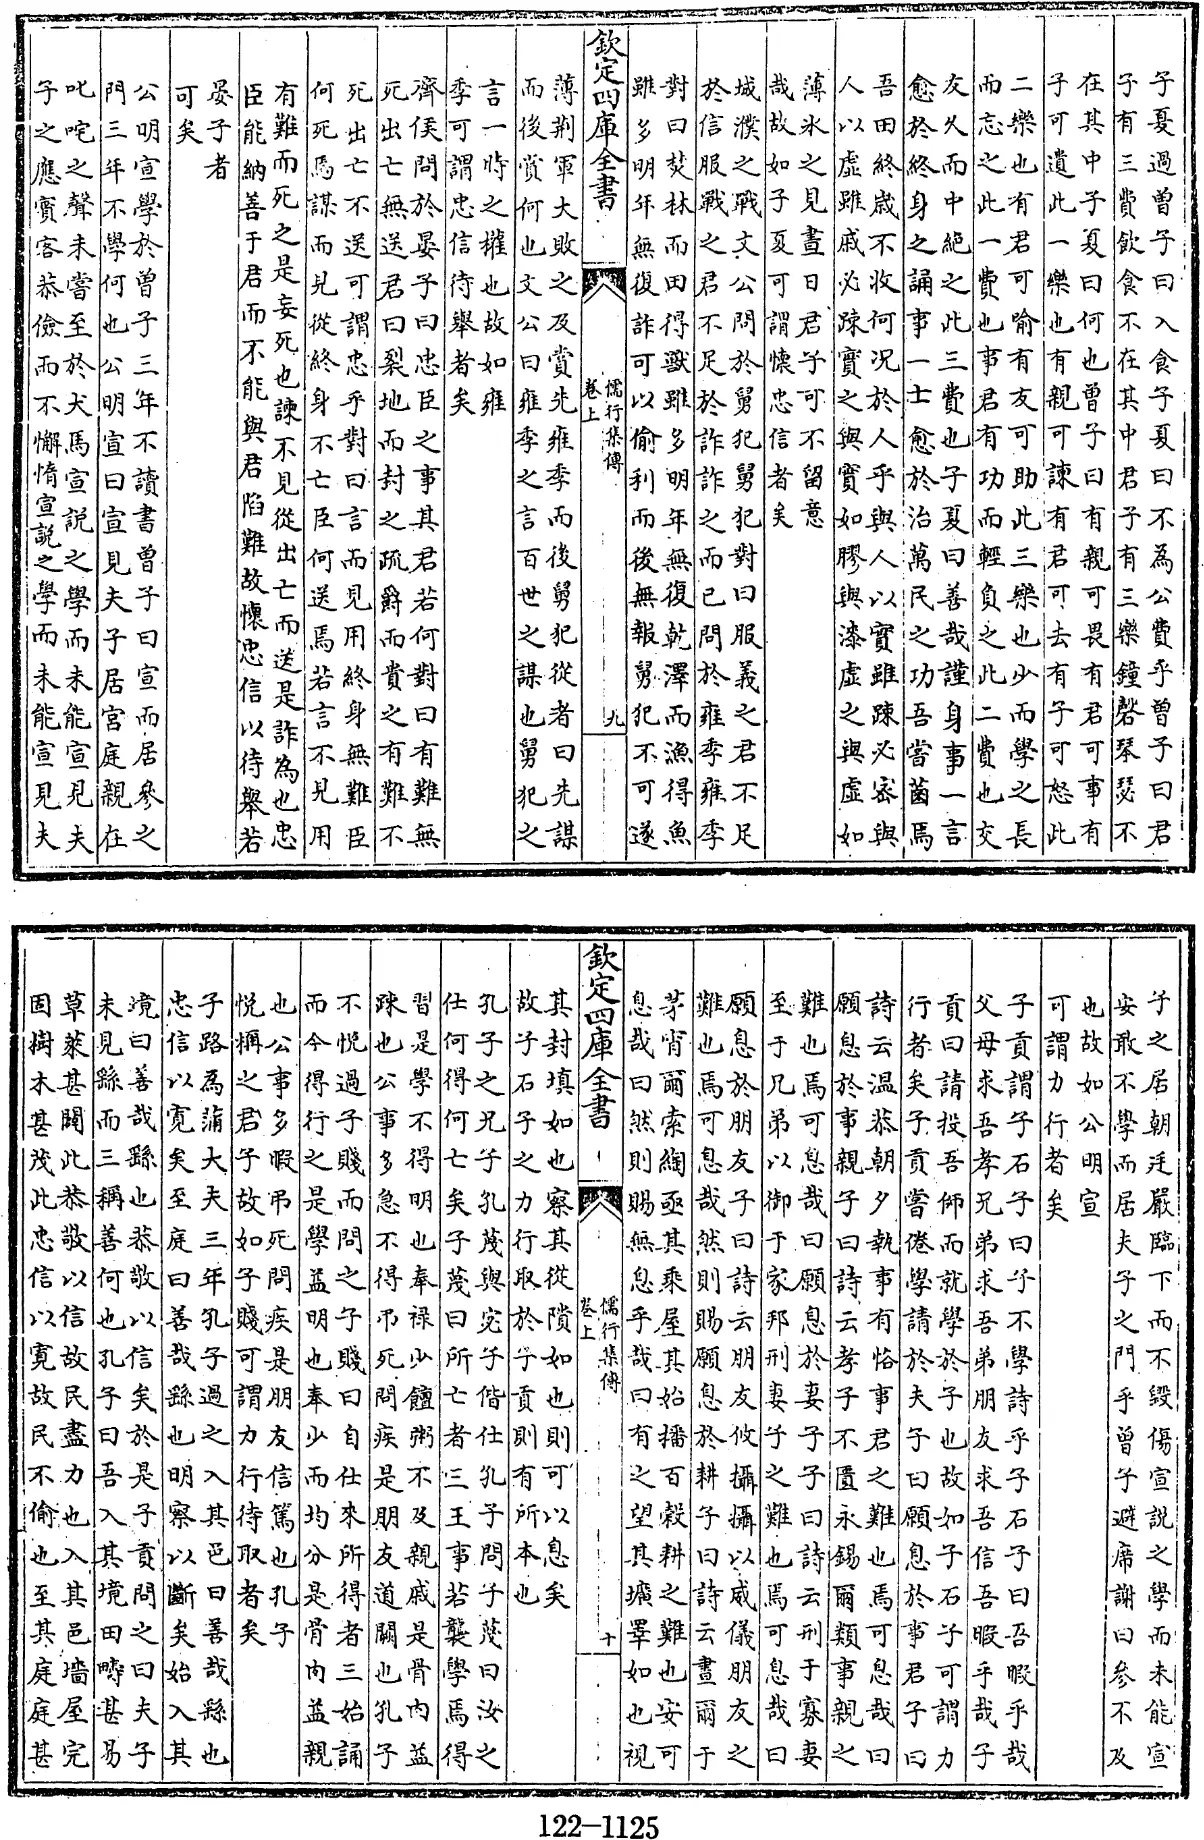 子夏過曾子曰入食子夏曰不為公費乎曾子曰君
子有三費飲食不在其中君子有三樂鐘磬琴瑟不
在其中子夏曰何也曾子曰有親可畏有君可事有
子可遺此一樂也有親可諫有君可去有子可怒此
二樂也有君可喻有友可助此三樂也少而學之長
而忘之此一費也事君有功而輕負之此二費也交
友久而中絶之此三費也子夏曰善哉謹身事一言
愈於終身之誦事一士愈於治萬民之功吾嘗菌焉
吾田終歲不收何况於人乎與人以實雖疎必密與
人以虛雖戚必疎實之與實如膠與漆虛之與虛如
薄氷之見晝日君子可不留意
哉故如子夏可謂懷忠信者矣
城濮之戰文公問於舅犯舅犯對曰服義之君不足
於信服戰之君不足於詐詐之而已問於雍季雍季
對曰焚林而田得獸雖多明年無復乾澤而漁得魚
雖多明年無復詐可以偷利而後無報舅犯不可遂
欽定四庫全書
儒行集傳
卷上
九
薄荆軍大敗之及賞先雍季而後舅犯從者曰先謀
而後賞何也文公曰雍季之言百世之謀也舅犯之
言一時之權也故如雍
季可謂忠信待舉者矣
齊侯問於晏子曰忠臣之事其君若何對曰有難無
死出亡無送君曰裂地而封之疏爵而貴之有難不
死出亡不送可謂忠乎對曰言而見用終身無難臣
何死焉謀而見從終身不亡臣何送焉若言不見用
有難而死之是妄死也諫不見從出亡而送是詐為也忠
臣能納善于君而不能與君陷難故懷忠信以待舉若
晏子者
可矣
公明宣學於曾子三年不讀書曾子曰宣而居參之
門三年不學何也公明宣曰宣見夫子居宮庭親在
叱咤之聲未嘗至於犬馬宣説之學而未能宣見夫
子之應賓客恭儉而不懈惰宣説之學而未能宣見夫
子之居朝廷嚴臨下而不毀傷宣説之學而未能宣
安敢不學而居夫子之門乎曾子避席謝曰參不及
也故如公明宣
可謂力行者矣
子貢謂子石子曰子不學詩乎子石子曰吾暇乎哉
父母求吾孝兄弟求吾弟朋友求吾信吾暇乎哉子
貢曰請投吾師而就學於子也故如子石子可謂力
行者矣子貢嘗倦學請於夫子曰願息於事君子曰
詩云温恭朝夕執事有恪事君之難也焉可息哉曰
願息於事親子曰詩云孝子不匱永錫爾類事親之
難也焉可息哉曰願息於妻子子曰詩云刑于寡妻
至于兄弟以御于家邦刑妻子之難也焉可息哉曰
願息於朋友子曰詩云朋友攸攝攝以威儀朋友之
難也焉可息哉然則賜願息於耕子曰詩云晝爾于
茅宵爾索綯亟其乘屋其始播百穀耕之難也安可
息哉曰然則賜無息乎哉曰有之望其壙睪如也視
欽定四庫全書
儒行集傳
卷上
十
其封填如也察其從隤如也則可以息矣
故子石子之力行取於子貢則有所本也
孔子之兄子孔蔑與宓子偕仕孔子問子蔑曰汝之
仕何得何亡矣子蔑曰所亡者三王事若襲學焉得
習是學不得明也奉禄少饘粥不及親戚是骨肉益
疎也公事多急不得弔死問疾是朋友道闕也孔子
不悦過子賤而問之子賤曰自仕來所得者三始誦
而今得行之是學益明也奉少而均分是骨肉益親
也公事多暇弔死問疾是朋友信篤也孔子
悦稱之君子故如子賤可謂力行待取者矣
子路為蒲大夫三年孔子過之入其邑曰善哉繇也
忠信以寬矣至庭曰善哉繇也明察以斷矣始入其
境曰善哉繇也恭敬以信矣於是子貢問之曰夫子
未見繇而三稱善何也孔子曰吾入其境田疇甚易
草萊甚闢此恭敬以信故民盡力也入其邑墻屋完
固樹木甚茂此忠信以寛故民不偷也至其庭庭甚
122-1125